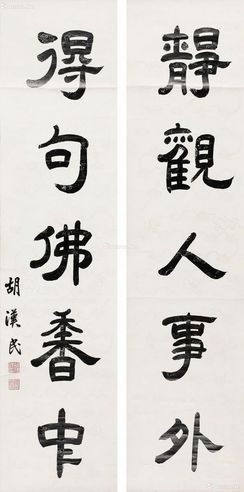 靜觀人事外
得句佛香中
胡漢民